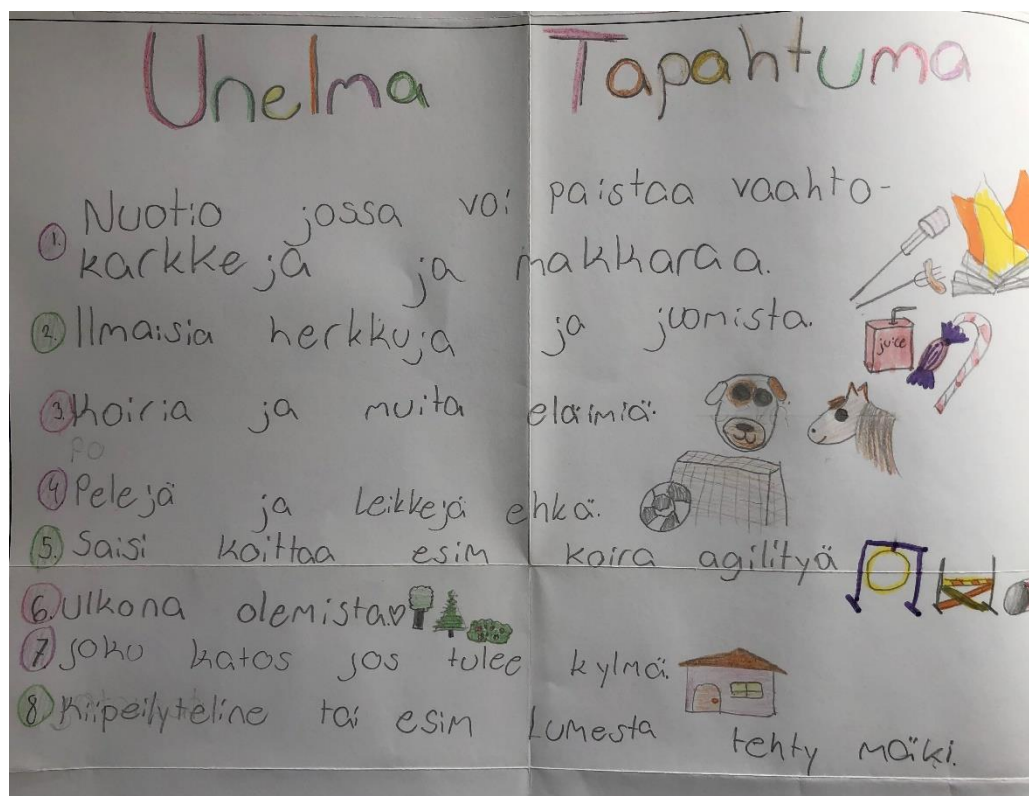 Unelma Tapahtuma
1. Nuotio jossa voi paistaa vaahto-
karkkeja ja makkaraa.
2. Ilmaisia herkkuja ja juomista.
juice
3. Koiria ja muita eläimiä.
po
4 Pelejä ja Leikkejä ehkä.
5. Saisi koittaa esim koira agilityä
6. Ulkona olemista♡
7 joku katos jos tulee kylmä.
8. Kiipeilyteline tai esim Lumesta tehty mäki.